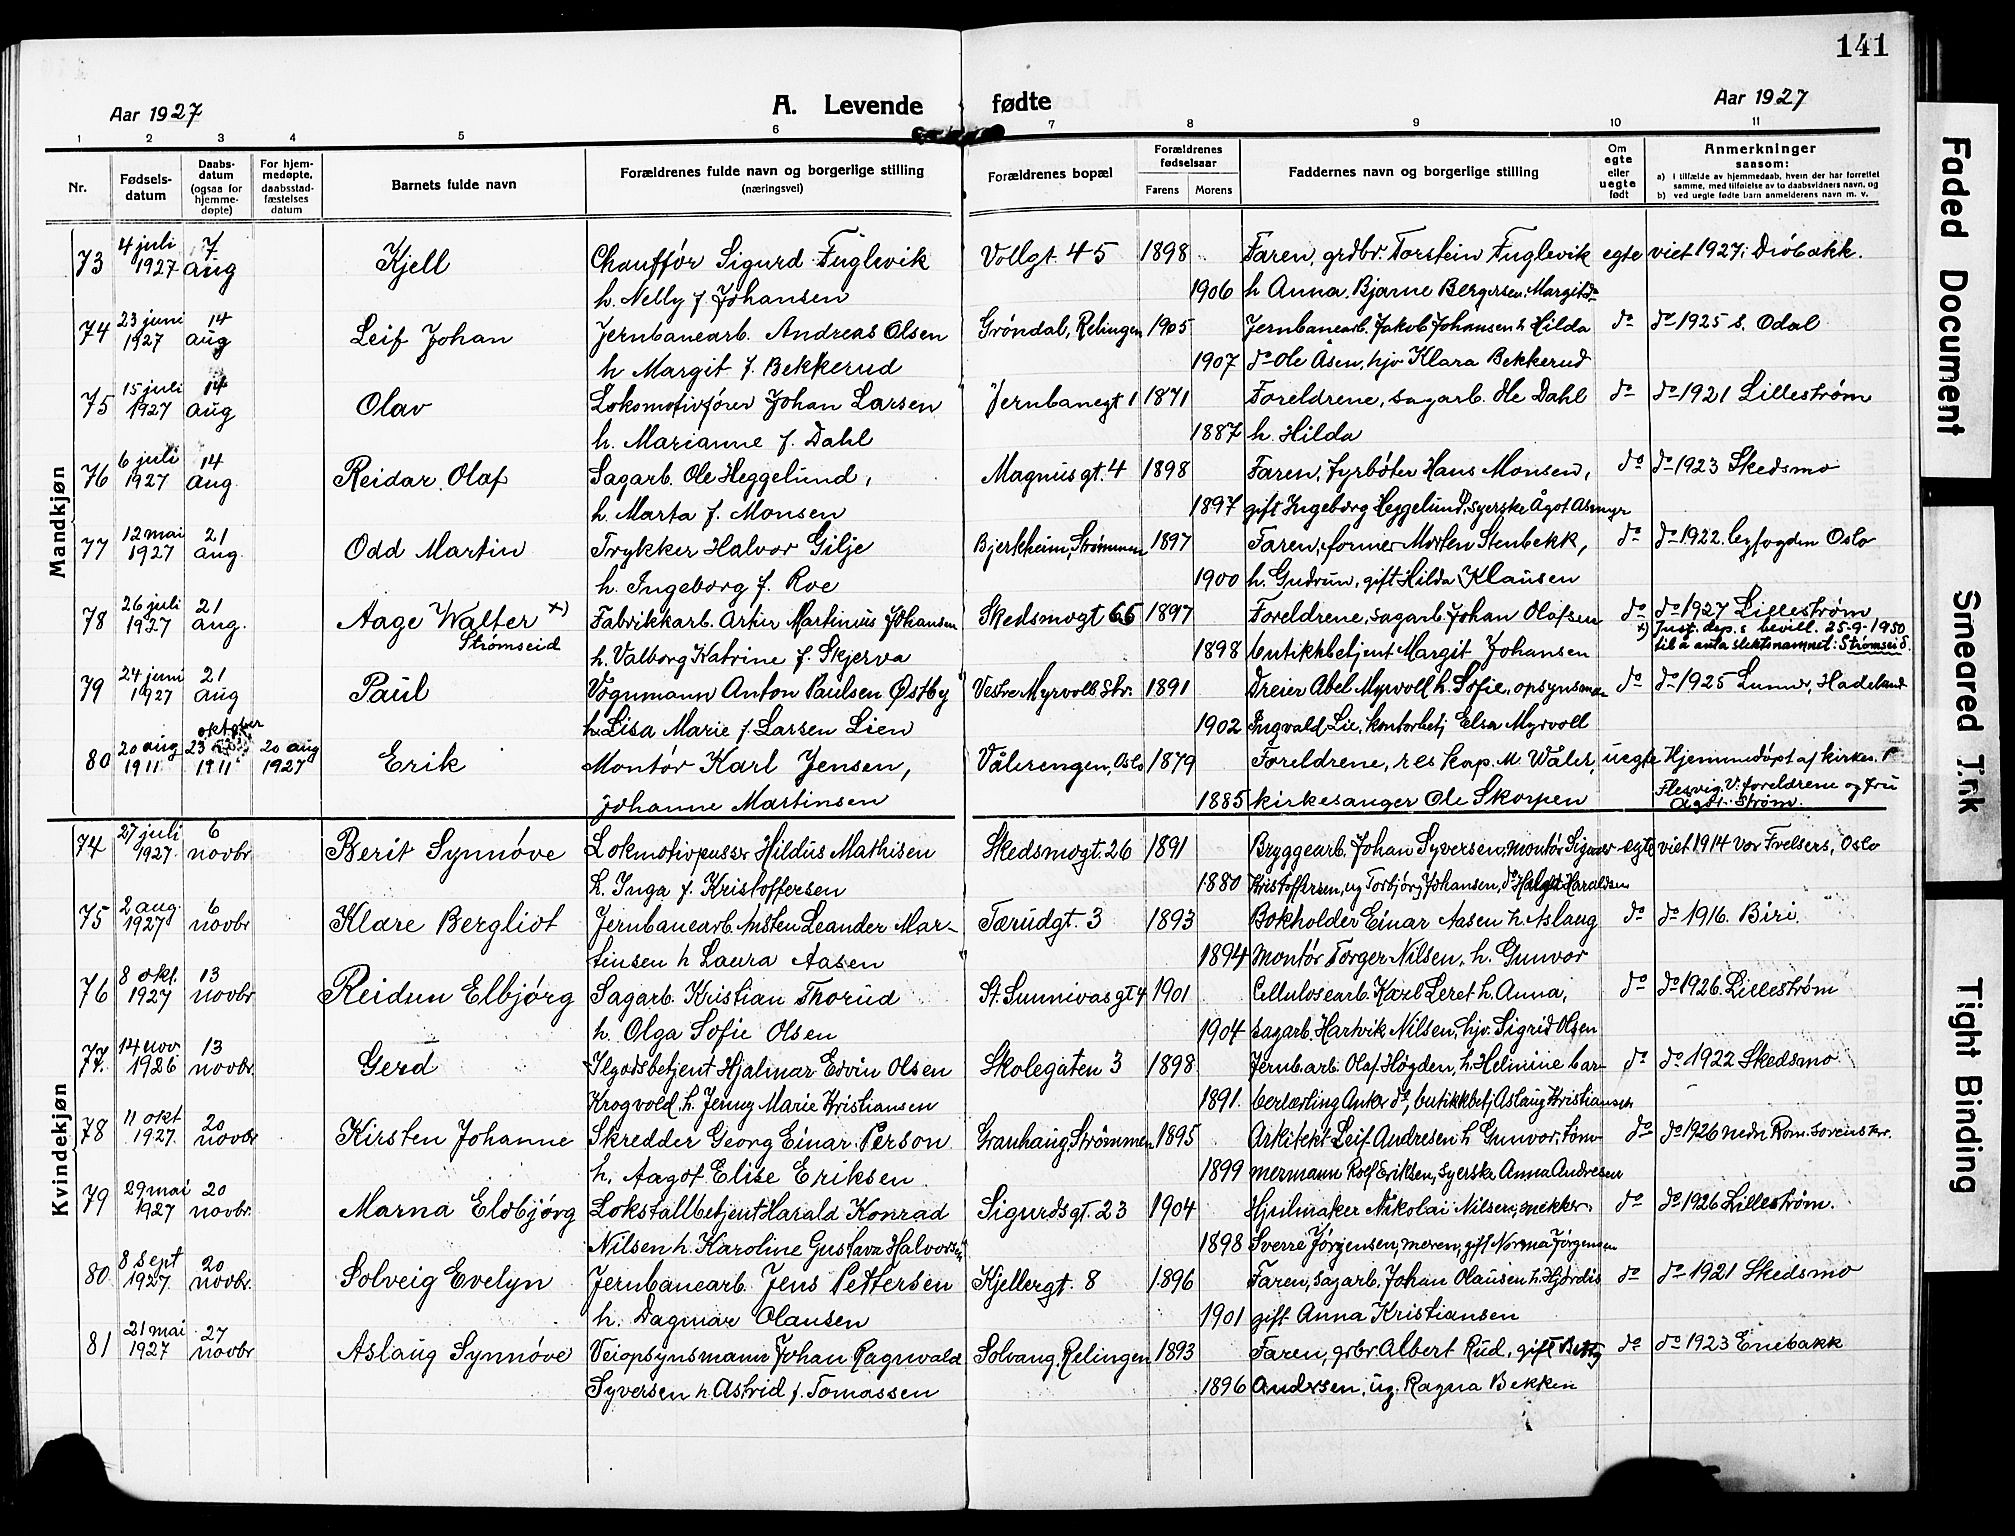 141
Aar 1927
A. Levende fødte
Aar 1927
1 2 3 4 5 6 7 8 9 10 11
Nr.
Fødsels-
datum
Daabs-
datum
(ogsaa for
hjemme-
døpte)
For hjem-
medøpte,
daabsstad-
fæstelses
datum
Barnets fulde navn
Forældrenes fulde navn og borgerlige stilling
(næringsvei)
Forældrenes bopæl
Forældrenes
fødselsaar
Farens Morens
Faddernes navn og borgerlige stilling
Om
egte
eller
uegte
født
Anmerkninger
saasom:
a) I tilfælde av hjemmedaab, hvem der har forrettet
samme, med tilføielse av to daabsvidners navn, og
b) ved uegte fødte barn anmelderens navn m. v.
Mandkjøn
73 4 juli 7 Kjell Chauffør Sigurd Fuglevik Vollgt. 45 1898 Faren, grdbr. Torstein Fuglevik egte viet 1927 i Drøbakk.
1927 aug h. Nelly f. Johansen 1906 h Anna, Bjarne Bergersen, Margit do
74 23 juni 14 Leif Johan Jernbanearb. Andreas Olsen Grøndal, Relingen 1905 Jernbanearb. Jakob Johansen h Hilda do do 1925 s. Odal
1927 aug h Margit f. Bekkerud 1907 do Ole Åsen, hjv Klara Bekkerud
75 15 juli 14 Olav Lokomotivfører Johan Larsen Jernbanegt 1 1871 Foreldrene, sagarb. Ole Dahl do do 1921 Lillestrøm
1927 aug h. Marianne f. Dahl 1887 h. Hilda
76 6 juli 14 Reidar Olaf Sagarb. Ole Heggelund, Magnusgt. 4 1898 Faren, fyrbøter Hans Monsen, do do 1923 Skedsmo
1927 aug. h. Marta f. Monsen 1897 gift Ingeborg Heggelund, syerske Ågot Asmyr
77 12 mai 21 Odd Martin Trykker Halvor Gilje Bjerkheim, Strømmen 1897 Faren, former Morten Stenbekk, do do 1922. byfogden Oslo
1927 aug. h. Ingeborg f. Roe 1900 h. Gudrun, gift Hilda Klausen
78 26 juli 21 Aage Walter x) Fabrikkarb. Artur Martinius Johansen Skedsmogt 66 1897 Foreldrene, sagarb. Johan Olafsen do do 1927 Lillestrøm
1927 aug. Strømseid h. Valborg Katrine f. Skjerva 1898 butikkbetjent Margit Johansen x) Just. dep.s bevill. 25-9-1950
til å anta slektsnamnet: Strømseid.
79 24 juni 21 Paul Vognmann Anton Paulsen Østby Vestre Myrvoll Str. 1891 Dreier Abel Myrvoll h. Sofie, opsynsman do do 1925 Lunner, Hadeland
1927 aug h. Lisa Marie f. Larsen Lien 1902 Ingvald Lie, kontorbetj Elsa Myrvoll
80 20 aug oktober 23 20 aug Erik Montør Karl Jensen, Vålerengen, Oslo 1879 Foreldrene, res kap. M. Wåler, uegte Hjemmedøpt af kirkes. P
1911 1911 1927 Johanne Martinsen 1885 kirkesanger Ole Skorpen Flesvig V: foreldrene og fru
Strøm.
Kvindekjøn
74 27 juli 6 Berit Synnøve Lokmotivpusser Hildus Mathisen Skedsmogt. 26 1891 Bryggearb. Johan Syversen, montør Signar egte viet 1914 Vor Frelsers, Oslo
1927. novbr h. Inga f. Kristoffersen 1880 Kristoffersen, ug Torbjørg Johansen, do Helga Haraldsen
75 2 aug. 6 Klare Bergliot Jernbanearb. Ansten Leander Mar- Tærudgt. 3 1893 Bokholder Einar Aasen h. Aslaug do do 1916. Biri.
1927 novbr tinsen h Laura Aasen 1894 montør Torger Nilsen, h. Gunvor
76 8 okt. 13 Reidun Elbjørg Sagarb. Kristian Thorud St. Sunnivas gt 4 1901 Cellulosearb. Karl Leret h. Anna, do do 1926. Lillestrøm
1927 novbr h. Olga Sofie Olsen 1904 sagarb. Hartvik Nilsen, hjv. Sigrid Olsen
77. 14 nov 13 Gerd Ilgodsbetjent Hjalmar Edvin Olsen Skolegaten 3 1898 Jernb.arb. Olaf Høgden, h. Helmine bar- do do 1922 Skedsmo
1926 novbr. Krogvold h. Jenny Marie Kristiansen 1891. berlærling Anker do, butikkbetj Aslaug Kristiansen
78 11 okt 20 Kirsten Johanne Skredder Georg Einar Person Granhaug, Strømmen 1895 Arkitekt Leif Andresen h Gunvor, tøm- do do 1926 nedr Rom. Sorenskr.
1927. novbr h. Aagot Elise Eriksen 1899 mermann Rolf Eriksen, syerske Anna Andresen
79 29 mai 20 Marna Eldbjørg Lokstallbetjent Harald Konrad Sigurdsgt. 23 1904 Hjulmaker Nikolai Nilsen, mekker. do do 1926 Lillestrøm.
1927 novbr. Nilsen h. Karoline Gustava Halvorsen 1898 Sverre Jørgensen, moren, gift Norma Jørgensen
80 8 sept 20 Solveig Evelyn Jernbanearb. Jens Pettersen Kjellergt. 8 1896 Faren, sagarb. Johan Olausen h. Hjørdis do do 1921 Skedsmo
1927. novbr. h. Dagmar Olausen 1901 gift Anna Kristiansen
81 21 mai 27 Aslaug Synnøve Veiopsynsmann Johan Ragnvald Solvang, Relingen 1893 Faren, grbr. Albert Rud, gift Betty do do 1923 Enebakk
1927 novbr Syversen h. Astrid f. Tomassen 1896 Andersen, ug. Ragna Bekken
Faded Document
Smeared Ink
Tight Binding